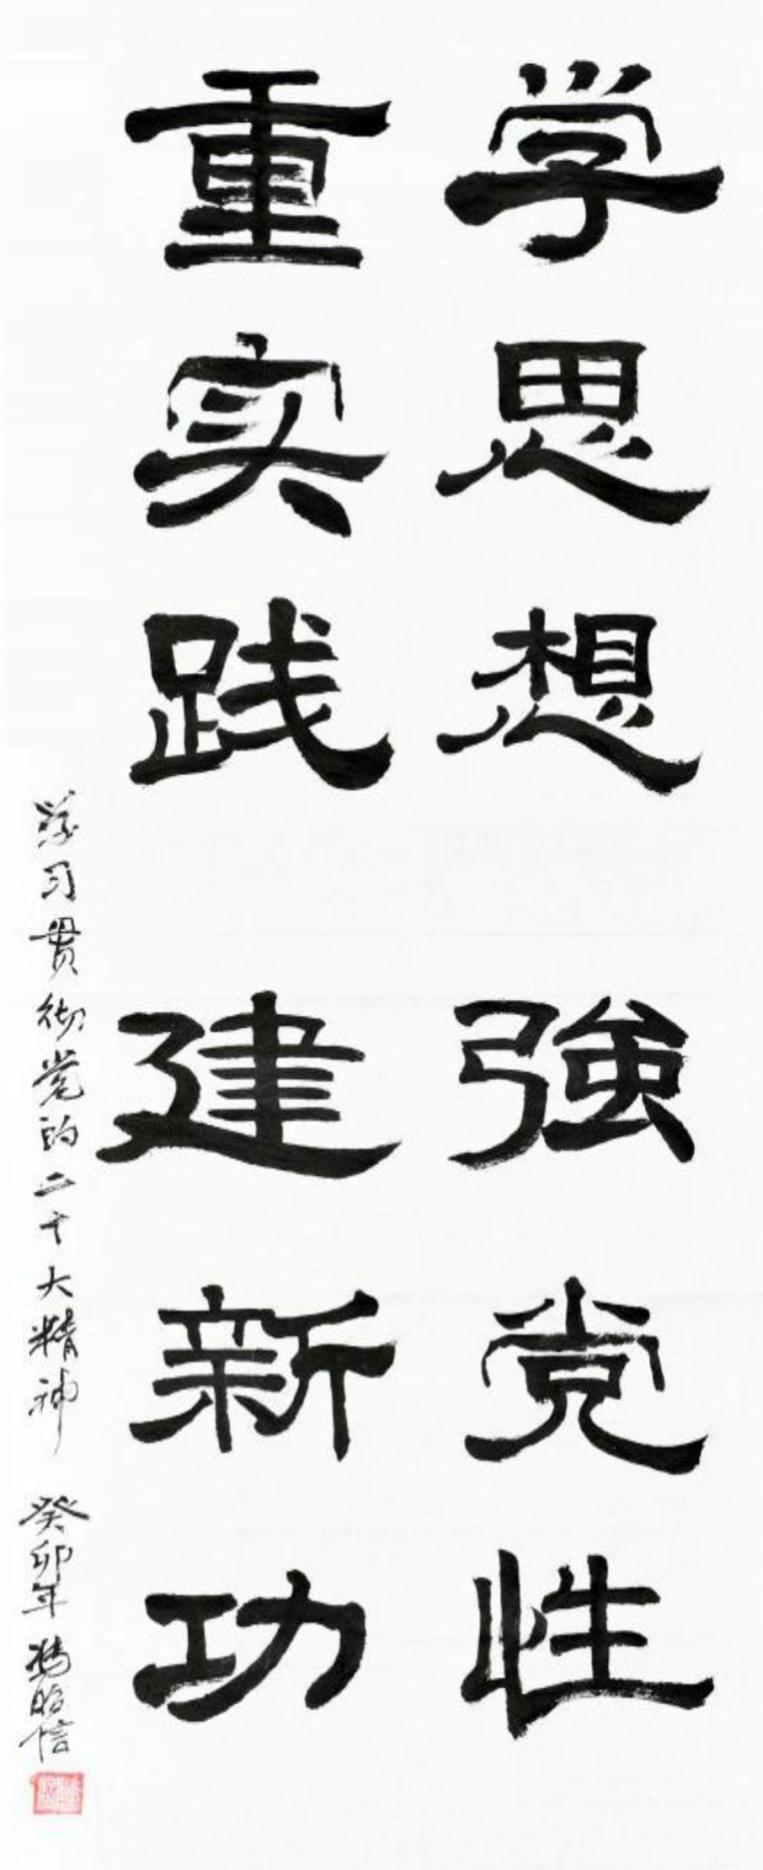 学思想 強党性
重实践 建新功
学习贯彻党的二十大精神 癸卯年 冯昭信